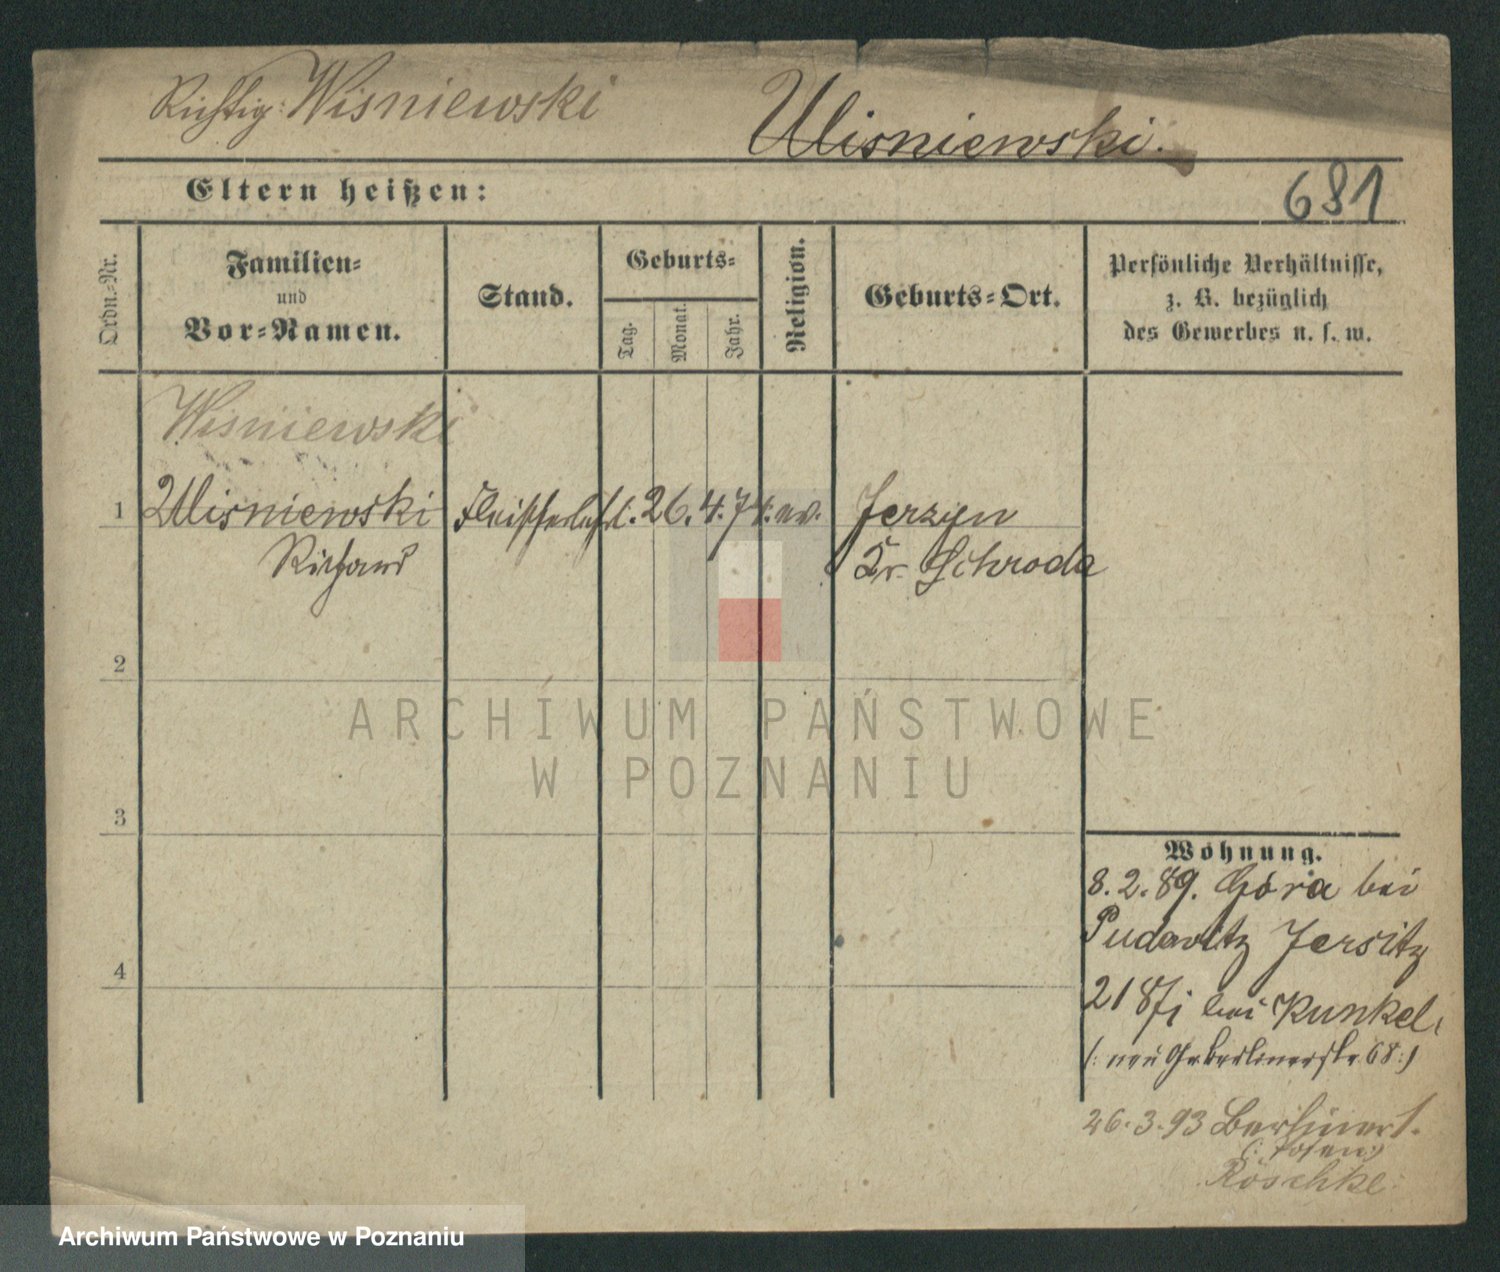 Richtig: Wisniewski
Ulisniewski.
Eltern heißen:
681
Ordn.-Nr.
Familien-
und
Vor-Namen.
Stand.
Geburts-
Tag.
Monat.
Jahr.
Religion.
Geburts-Ort.
Persönliche Verhältnisse,
z. B. bezüglich
des Gewerbes u. s. w.
Wisniewski
1 Ulisniewski Fleischerlehrl. 26. 4. 74. ev. Jerzyn
Richard Kr. Schroda
2
3
4
Wohnung.
8. 2. 89. Góra bei
Pudewitz Jersitz
bei Kunkel,
(: neu 68 :)
26. 3. 93 Berlinerst. 1.
(: Posen :)
Röschke
ARCHIWUM PAŃSTWOWE
W POZNANIU
Archiwum Państwowe w Poznaniu